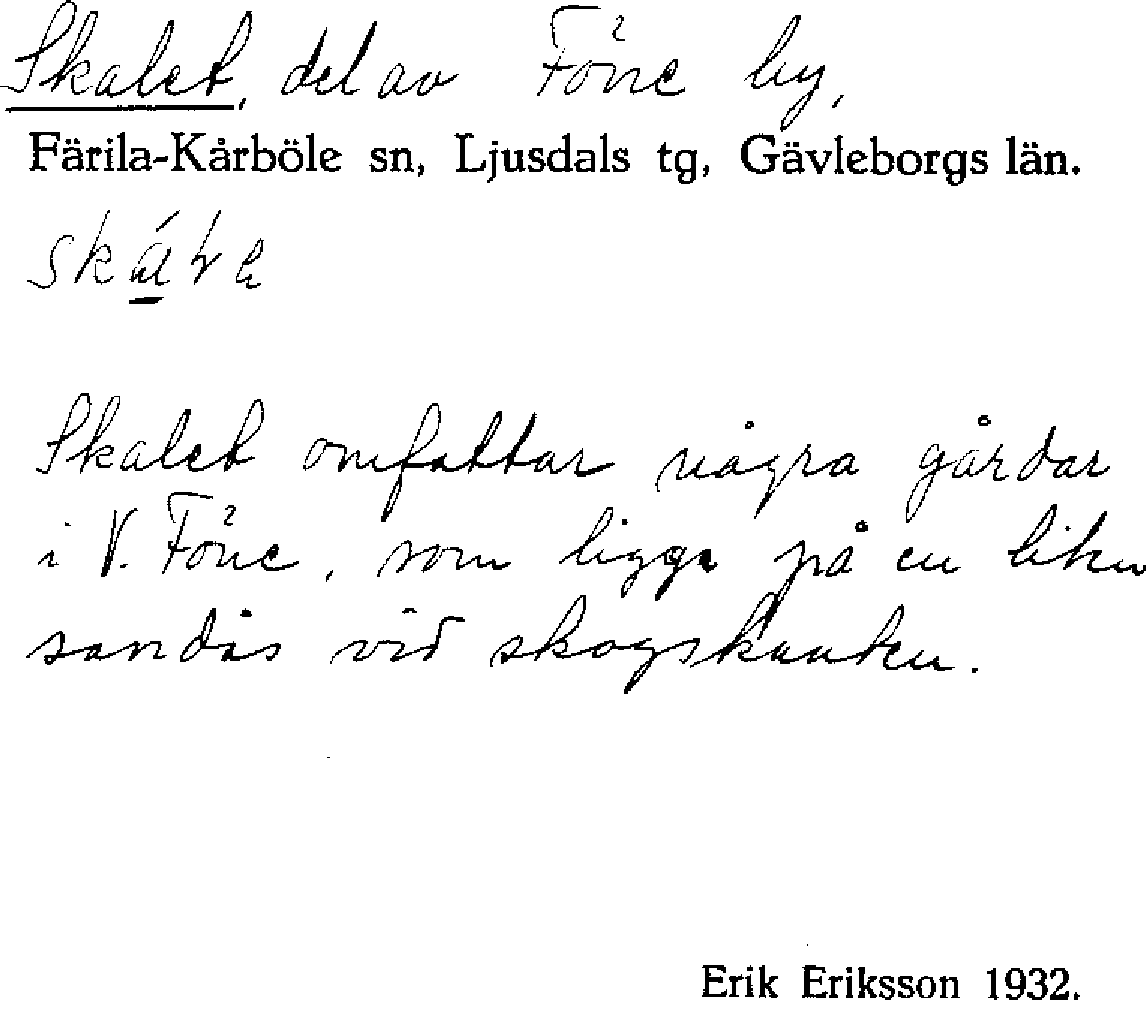 Skalet, del av Föne by,
Färila-Kårböle sn, Ljusdals tg, Gävleborgs län.
Skalet omfattar några gårdar
i V. Föne, som ligga på en liten
sandås vid skogskanten.
Erik Eriksson 1932.